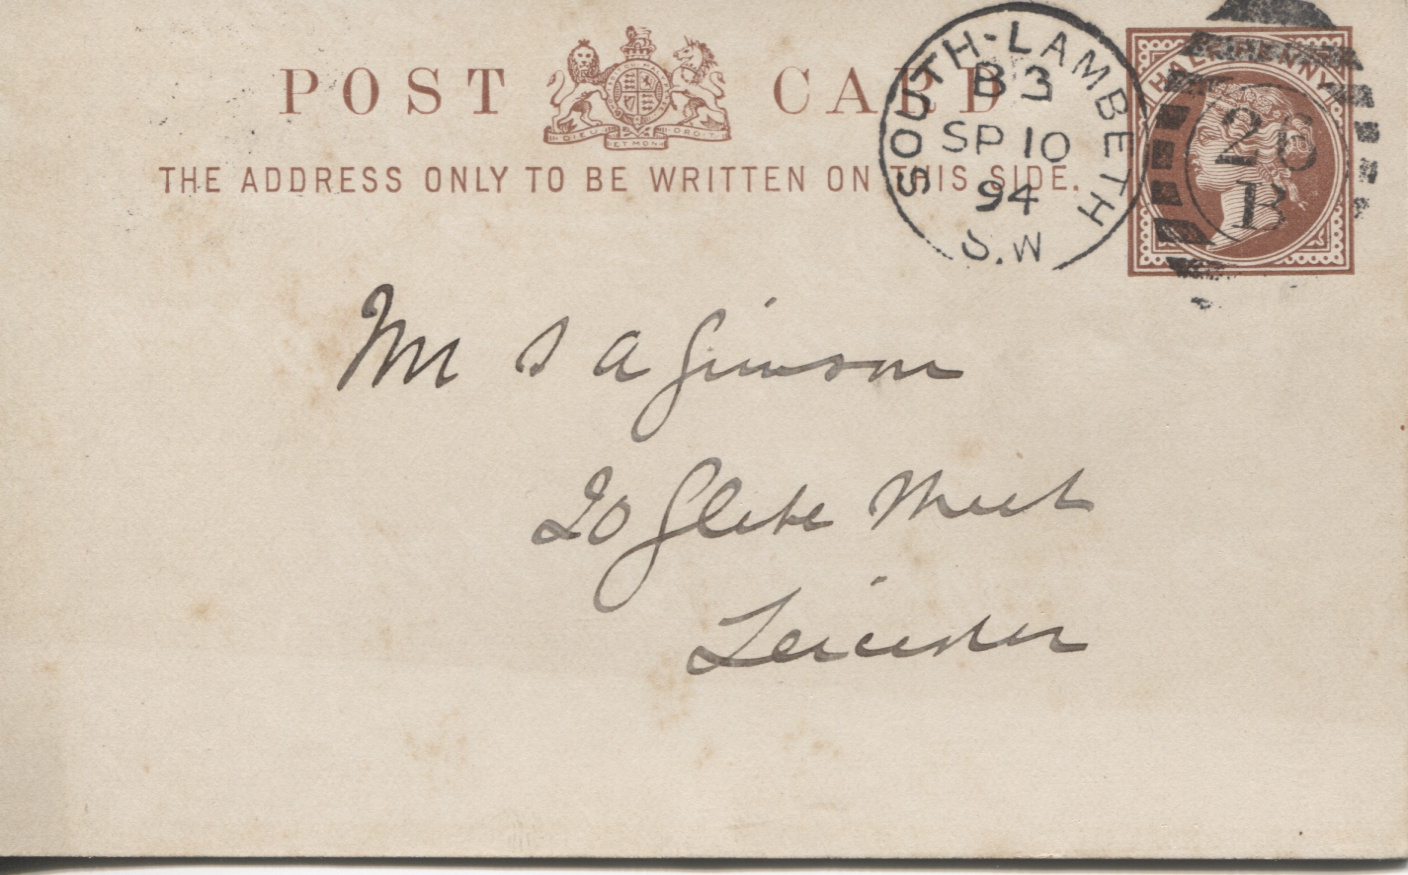 POST CARD
THE ADDRESS ONLY TO BE WRITTEN ON THIS SIDE.
HALFPENNY
SOUTH-LAMBETH
B3
SP 10
94
S.W
26
B
DIEU ET MON DROIT
Mr S A Gimson
20 Glebe Street
Leicester